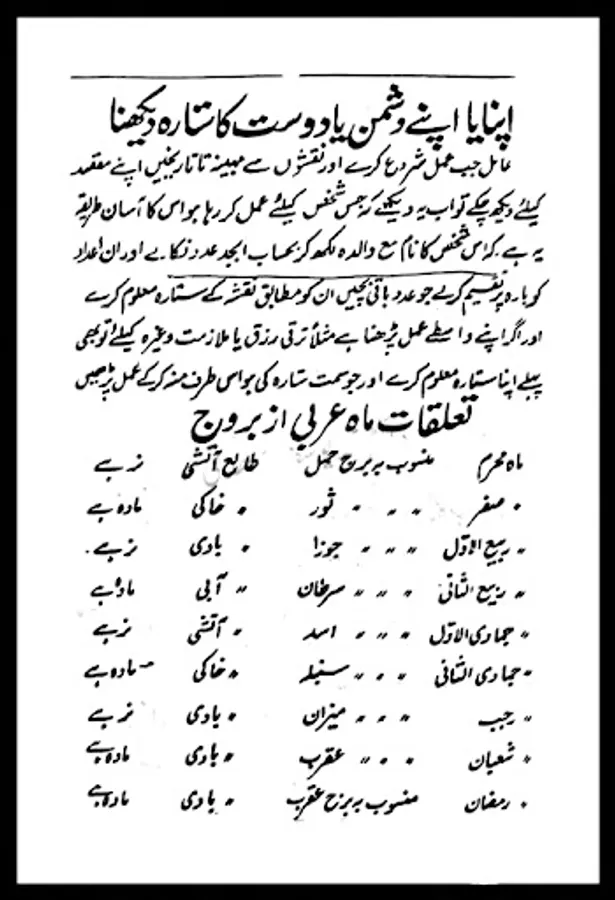 اپنا یا اپنے دشمن یا دوست کا ستارہ دیکھنا
عامل جب عمل شروع کرے اور نقشوں سے مہینہ تا تاریخیں اپنے مقصد
کیلئے دیکھ چکے تو اب یہ دیکھے کہ جس شخص کیلئے عمل کر رہا ہو اس کا آسان طریقہ
یہ ہے کہ اس شخص کا نام مع والدہ لکھ کر بحساب ابجد عدد نکالے اور ان اعداد
کو بارہ پر تقسیم کرلے جو عدد باقی بچیں ان کو مطابق نقشہ کے ستارہ معلوم کرے
اور اگر اپنے واسطے عمل پڑھنا ہے مثلاً ترقی رزق یا ملازمت وغیرہ کیلئے تو بھی
پہلے اپنا ستارہ معلوم کرے اور جو سمت ستارہ کی ہو اسی طرف منہ کرکے عمل پڑھیں
تعلقات ماہ عربی از بروج
ماہ محرم منسوب بہ برج حمل طالع آتشی نر ہے
〃 صفر 〃 〃 〃 ثور 〃 خاکی مادہ ہے
〃 ربیع الاوّل 〃 〃 〃 جوزا 〃 بادی نر ہے۔
〃 ربیع الثانی 〃 〃 〃 سرطان 〃 آبی مادہ ہے
〃 جمادی الاوّل 〃 〃 〃 اسد 〃 آتشی نر ہے
〃 جمادی الثانی 〃 〃 〃 سنبلہ 〃 خاکی مادہ ہے
〃 رجب 〃 〃 〃 میزان 〃 بادی نر ہے
〃 شعبان 〃 〃 〃 عقرب 〃 بادی مادہ ہے
〃 رمضان منسوب بہ برج عقرب 〃 بادی مادہ ہے